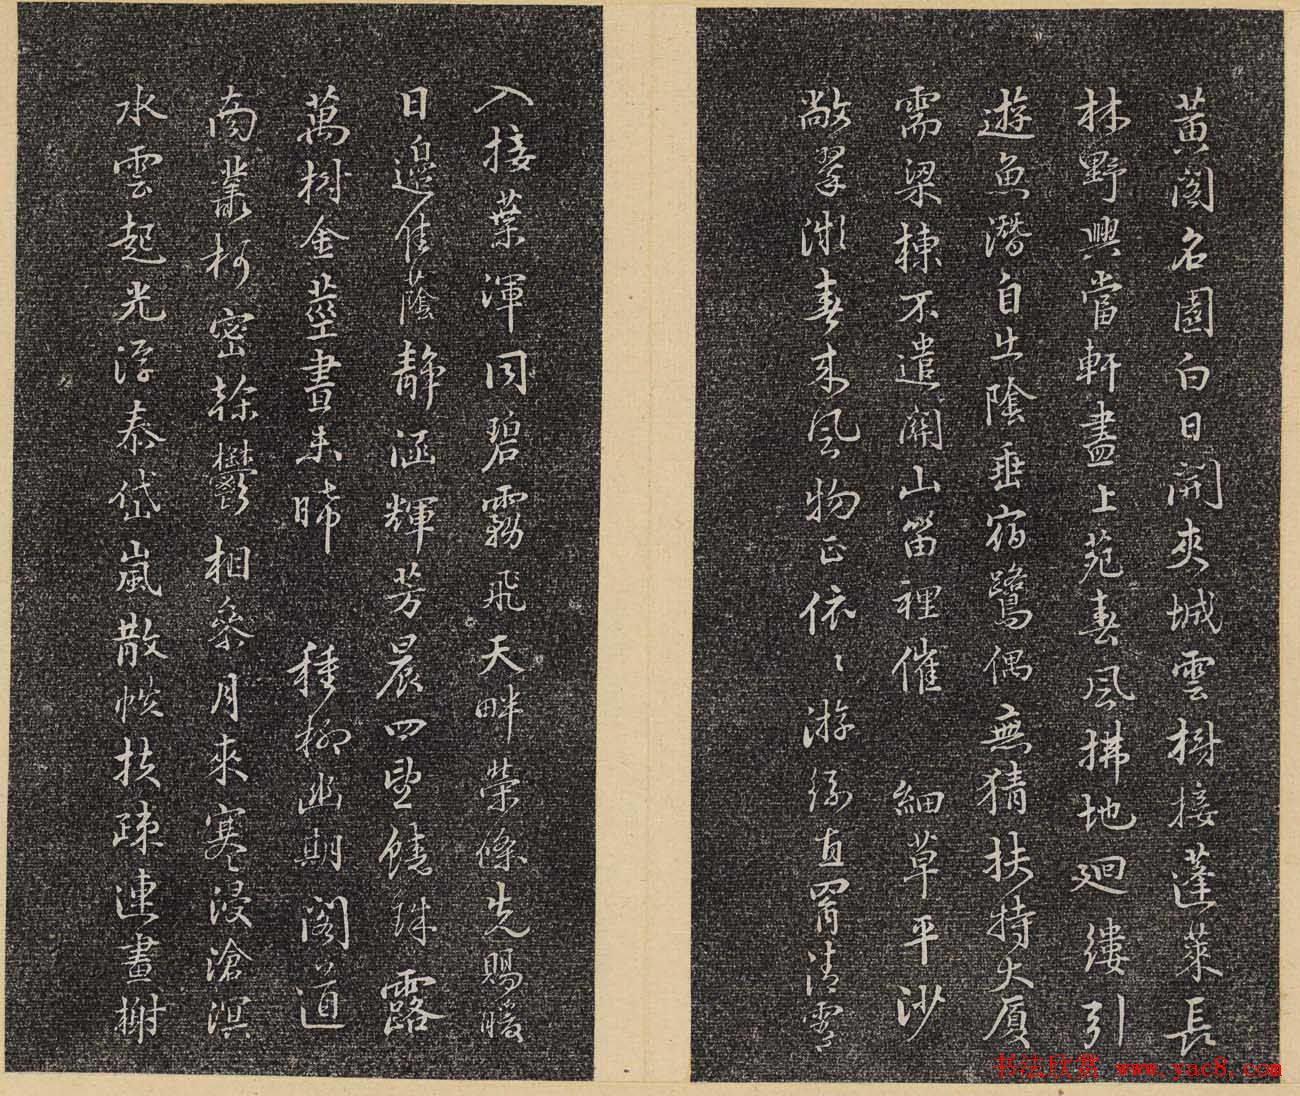 黃閣名園白日開夾城雲樹接蓬萊長
林野興當軒盡上苑春風拂地迴縷引
遊魚潛自出陰垂宿鷺偶無猜扶持大廈
需梁棟不遣關山笛裡催 細草平沙
敞翠微春來風物正依〻游絲直罥清霄
入接葉渾同碧霧飛天畔榮條先賜暖
日邊佳蔭靜涵輝芳晨四望饒珠露
萬樹金莖晝未晞 種柳幽期閣道
南叢柯密幹鬱相參月來寒〻浸滄溟
水雲起光浮泰岱嵐散帙扶疎連畫榭
书法欣赏 www.yac8.com